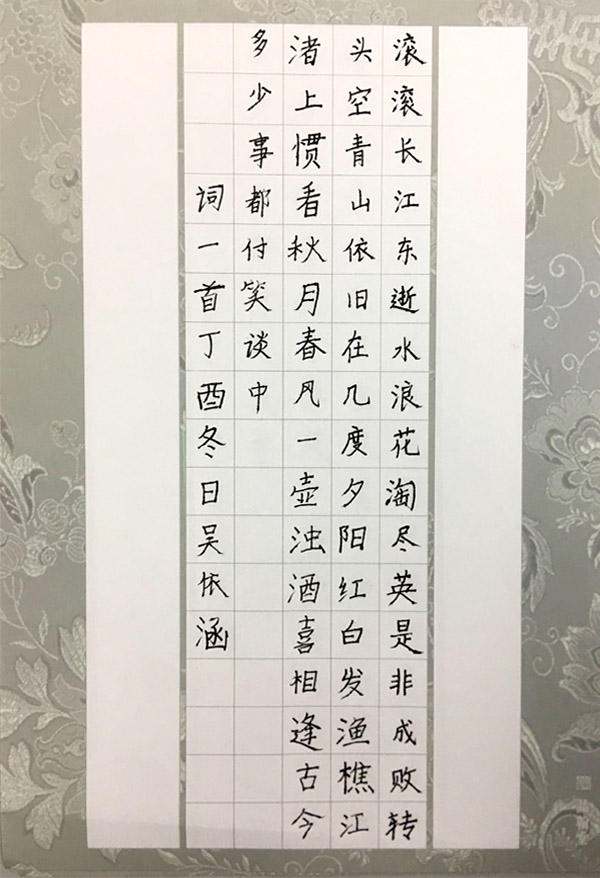 滚滚长江东逝水浪花淘尽英是非成败转
头空青山依旧在几度夕阳红白发渔樵江
渚上惯看秋月春风一壶浊酒喜相逢古今
多少事都付笑谈中
词一首丁酉冬日吴依涵